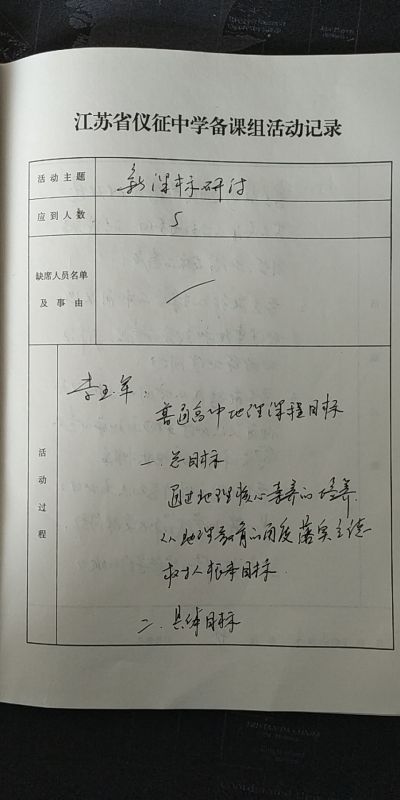 江苏省仪征中学备课组活动记录
活动主题 新课标研讨
应到人数 5
缺席人员名单
及事由
活动过程
李玉军：
普通高中地理课程目标
一. 总目标
通过地理核心素养的培养,
从地理教育的角度落实立德
树人根本目标.
二. 具体目标